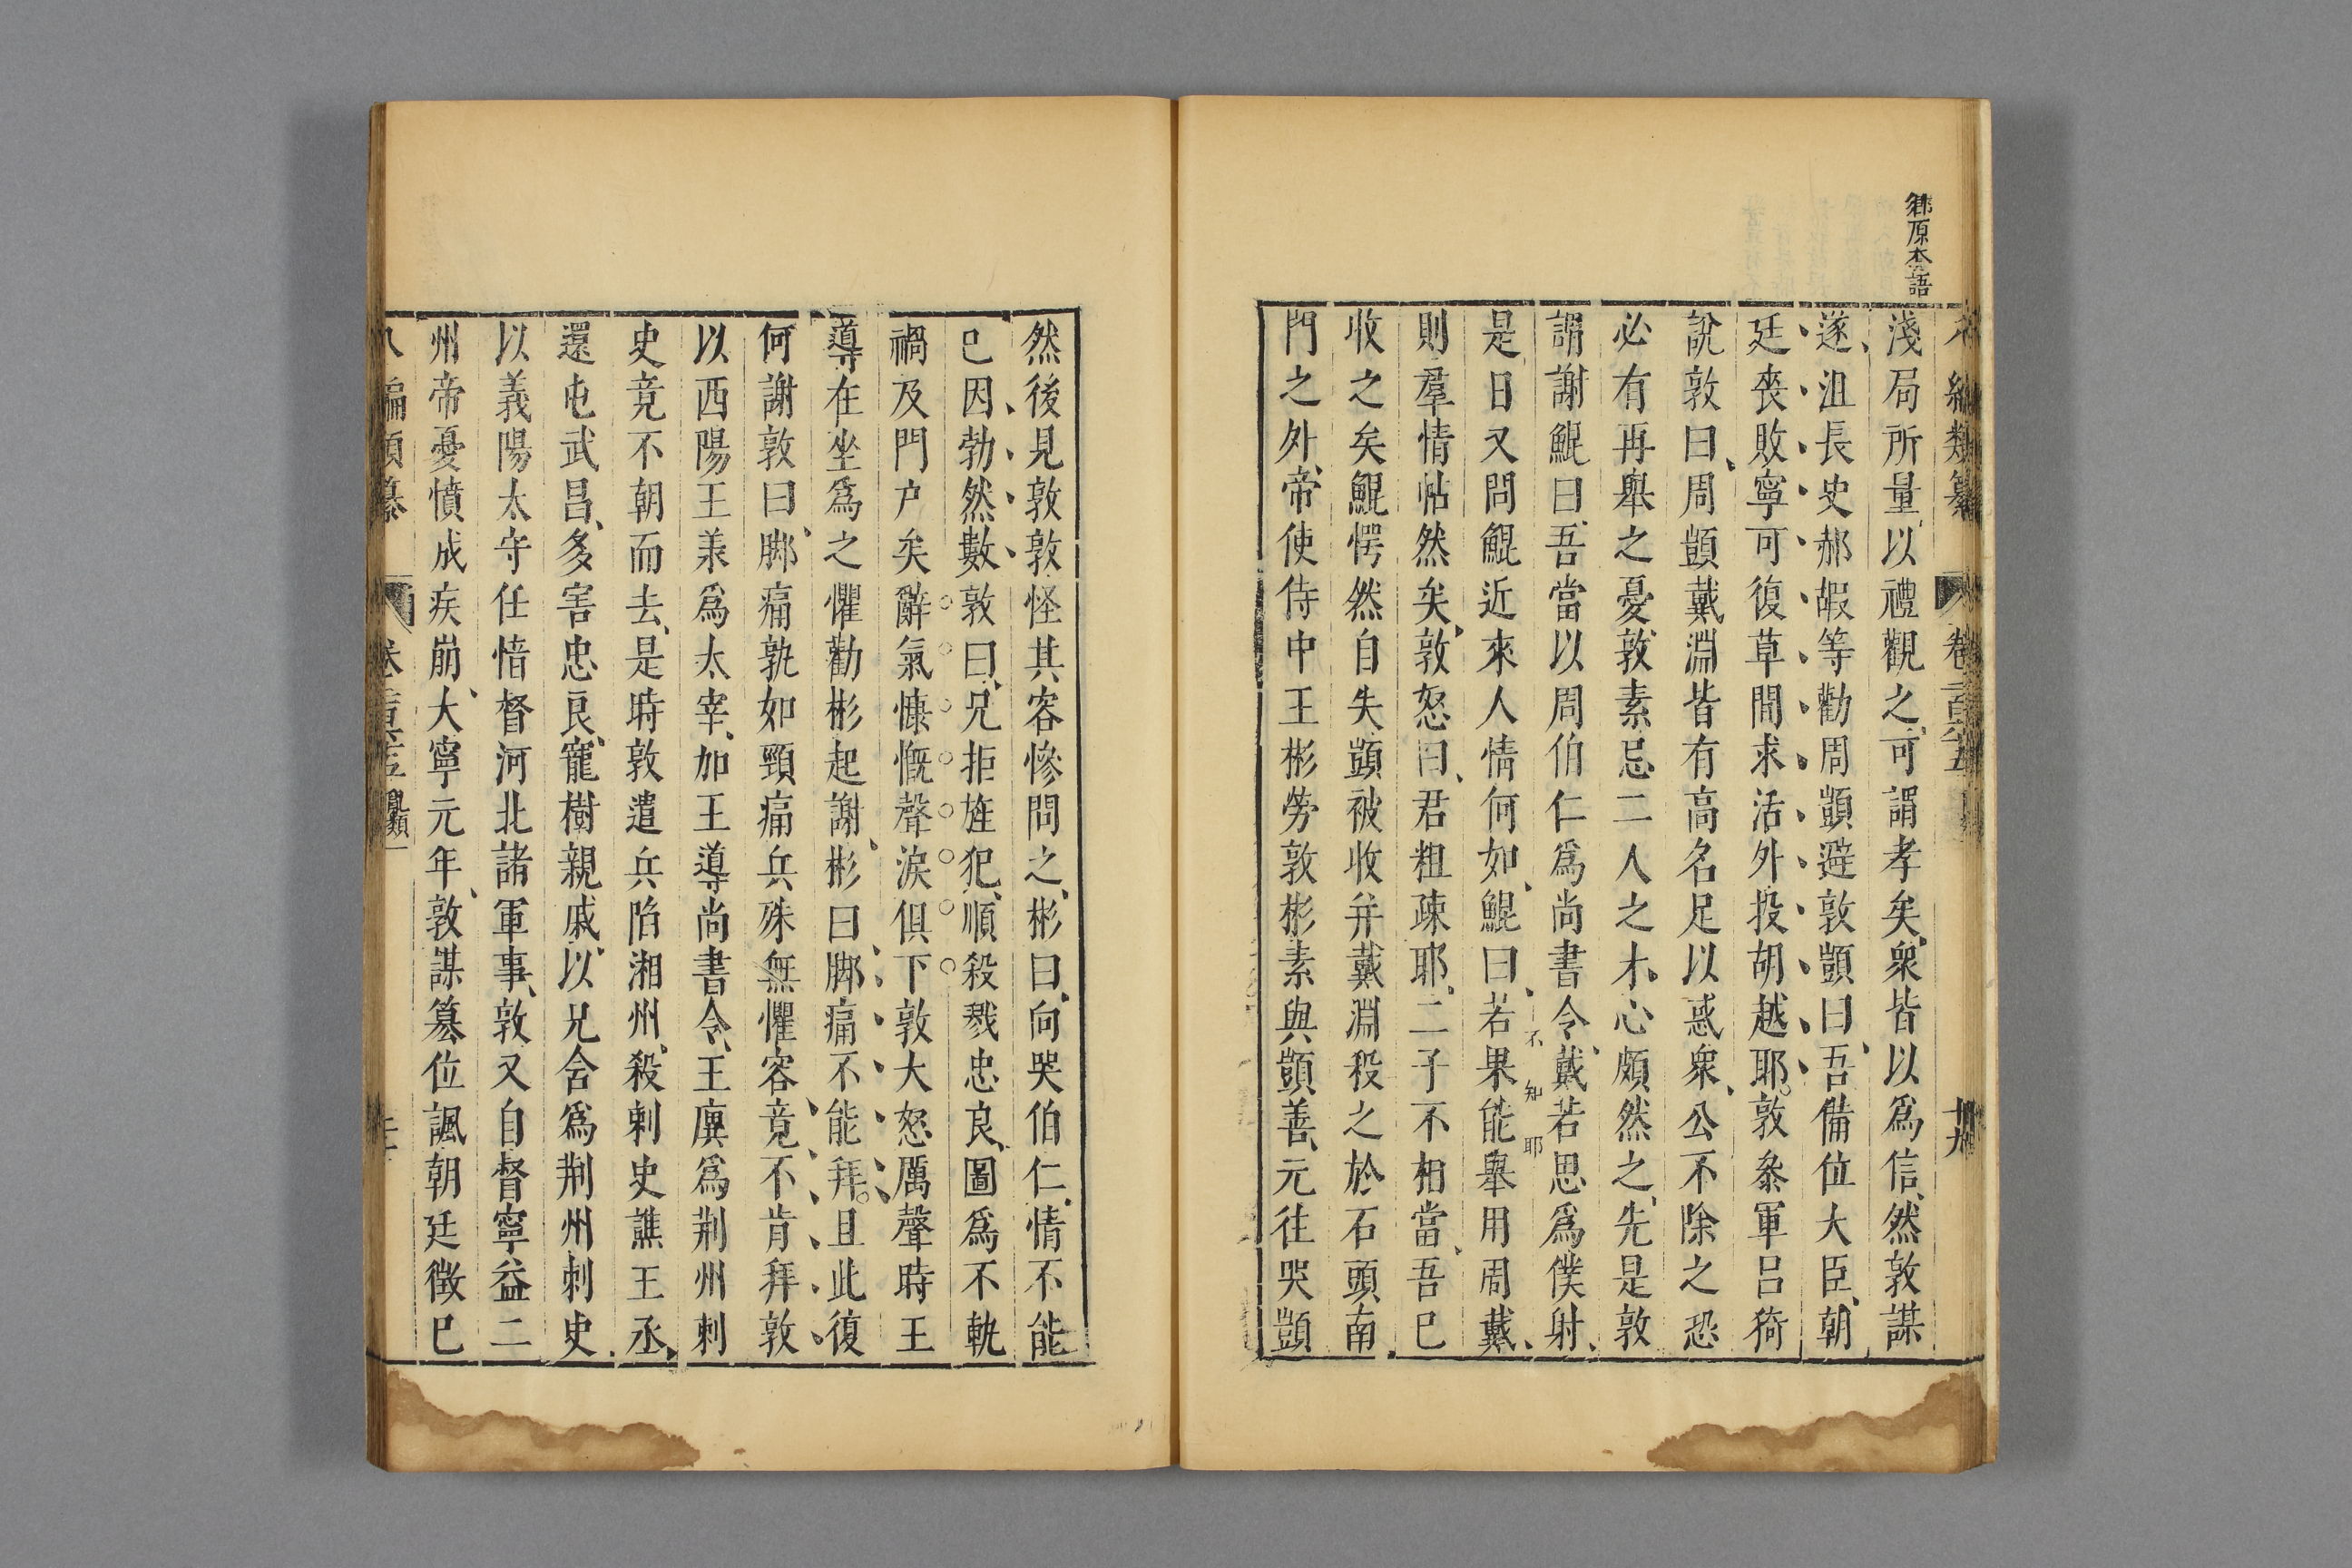 鄉原本語
八編類纂 卷二百六五 十九
淺局所量以禮觀之可謂孝矣衆皆以爲信然敦謀
遂沮長史郝嘏等勸周顗避敦顗曰吾備位大臣朝
廷喪敗寧可復草間求活外投胡越耶敦參軍呂猗
說敦曰周顗戴淵皆有高名足以惑衆公不除之恐
必有再舉之憂敦素忌二人之才心頗然之先是敦
謂謝鯤曰吾當以周伯仁爲尚書令戴若思爲僕射
不知耶
是日又問鯤近來人情何如鯤曰若果能舉用周戴
則羣情帖然矣敦怒曰君粗疎耶二子不相當吾已
收之矣鯤愕然自失顗被收幷戴淵殺之於石頭南
門之外帝使侍中王彬勞敦彬素與顗善元往哭顗
然後見敦敦怪其容慘問之彬曰向哭伯仁情不能
已因勃然數敦曰兄拒旌犯順殺戮忠良圖爲不軌
禍及門户矣辭氣慷慨聲淚俱下敦大怒厲聲時王
導在坐爲之懼勸彬起謝彬曰脚痛不能拜且此復
何謝敦曰脚痛孰如頸痛兵殊無懼容竟不肯拜敦
以西陽王羕爲太宰加王導尚書令王廙爲荆州刺
史竟不朝而去是時敦遣兵陷湘州殺刺史譙王丞
還屯武昌多害忠良寵樹親戚以兄含爲荆州刺史
以義陽太守任愔督河北諸軍事敦又自督寧益二
州帝憂憤成疾崩大寧元年敦謀簒位諷朝廷徵已
八編類纂 亂類一